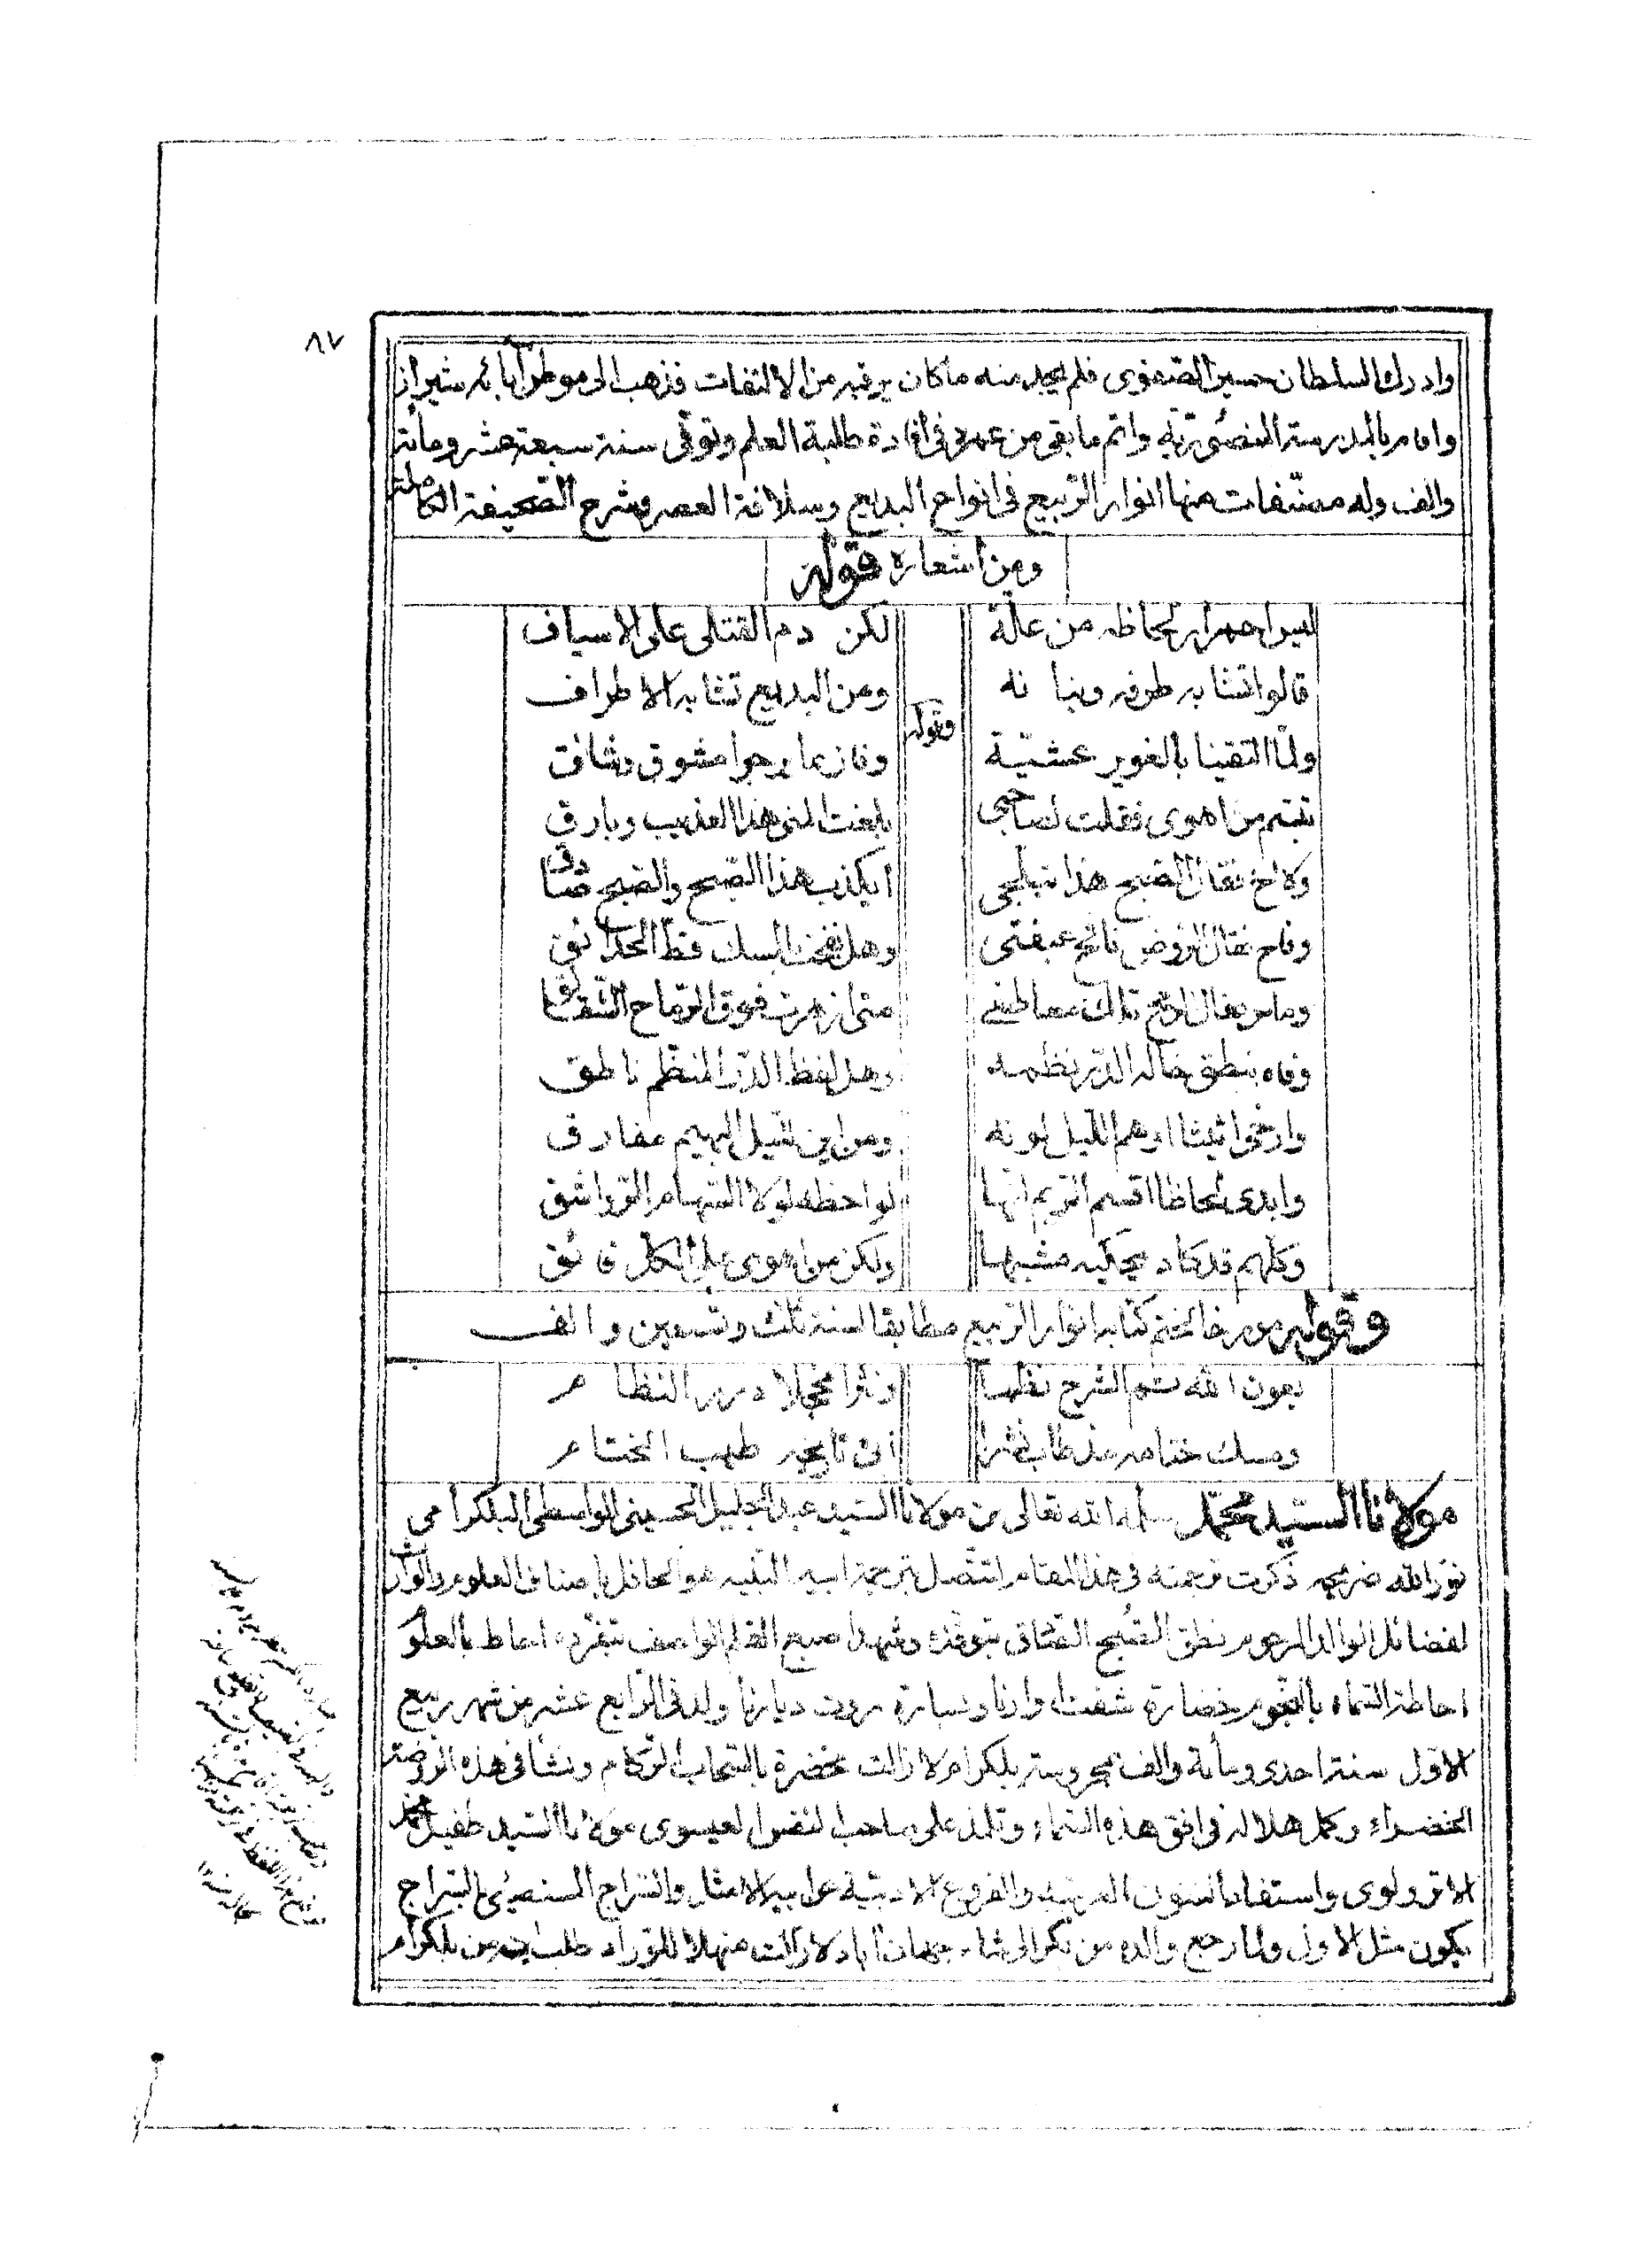 ٨٧
وادرك السلطان حسين الصفوى فلم يجد منه ما كان يرقبه من الالتفات فذهب الى موطن آبائه شيراز
واقام بالمدرسة المنصورية واتم ما بقى من عمره فى افادة طلبة العلم وتوفى سنة سبعة عشر ومائة
والف وله مصنّفات منها انوار الربيع فى انواع البديع وسلافة العصر وشرح الصحيفة الكاملة
ومن اشعاره قوله
ليس احمرار لحاظه من علة لكن دم القتلى على الاسياف
قالوا تشابه طرفه وبنانه ومن البديع تشابه الاطراف
وقوله
ولما التقينا بالغوير عشيّة وفاز بما يرجوا مشوق وشائق
تبسّم من اهوى فقلت لصاحبى بلغت المنى هذا العذيب وبارق
ولاح فقال الصبح هذا تبلّجى ايكذب هذا الصبح والصبح صادق
وفاح فقال الروض فائح عبقتى وهل نفحت بالمسك قطّ الحدائق
وماس فقال الرمح تلك معاطفى متى ازهرت فوق الرماح الشقائق
وفاه بنطق خاله الدّر نظمه وهل لفظ الدّر المنظّم ناطق
وارخوا اثيثا اوهم الليل لونه ومن اين لليل البهيم مفارق
وابدى لحاظا اقسم الريم انها لواحظه لولا السّهام الرواشق
وكلّهم قد كاد يحكيه مشبها ولكن من اهوى على الكلّ فائق
وقوله مورخا لختم كتابه انوار الربيع مطابقا لسنة ثلث وتسعين والف
بعون الله تم الشرح نظما ونثرا مخجلا درر النظام
ومسك ختامه مذ طاب نشرا اتى تاريخه طيب الختام
مولانا السيّد محمّد سلّمه الله تعالى بن مولانا السيد عبد الجليل الحسينى الواسطى البلكرامى
نوّر الله ضريحه ذكرت ترجمته فى هذا المقام لتتّصل بترجمة ابيه النّبيه هو الحافل باصناف العلوم والوارث
لفضائل الوالد المرحوم نطق الصّبح الصّادق بتوقّده وشهد اصبع القلم الواصف بتفرّده احاط بالعلوم
احاطة السّماء بالنجوم ولد فى الرابع عشر من شهر ربيع
الاوّل سنة احدى ومأية والف بمحروسة بلكرام لا زالت مخضرة بالسّحاب الرّكام ونشأ فى هذه الروضة
الخضراء وكمل هلاله فى افق هذه السّماء وتلمذ على صاحب النفس العيسوى مولانا السّيد طفيل محمد
الاترولوى واستفاد الفنون العربية والفروع الادبيّة على ابيه الامثل والسّراج المستضئ بالسّراج
يكون مثل الاول ولما رجع والده من بكر الى شاه جهان آباد لا زالت منهلا للورّاد طلب ابنه من بلكرام